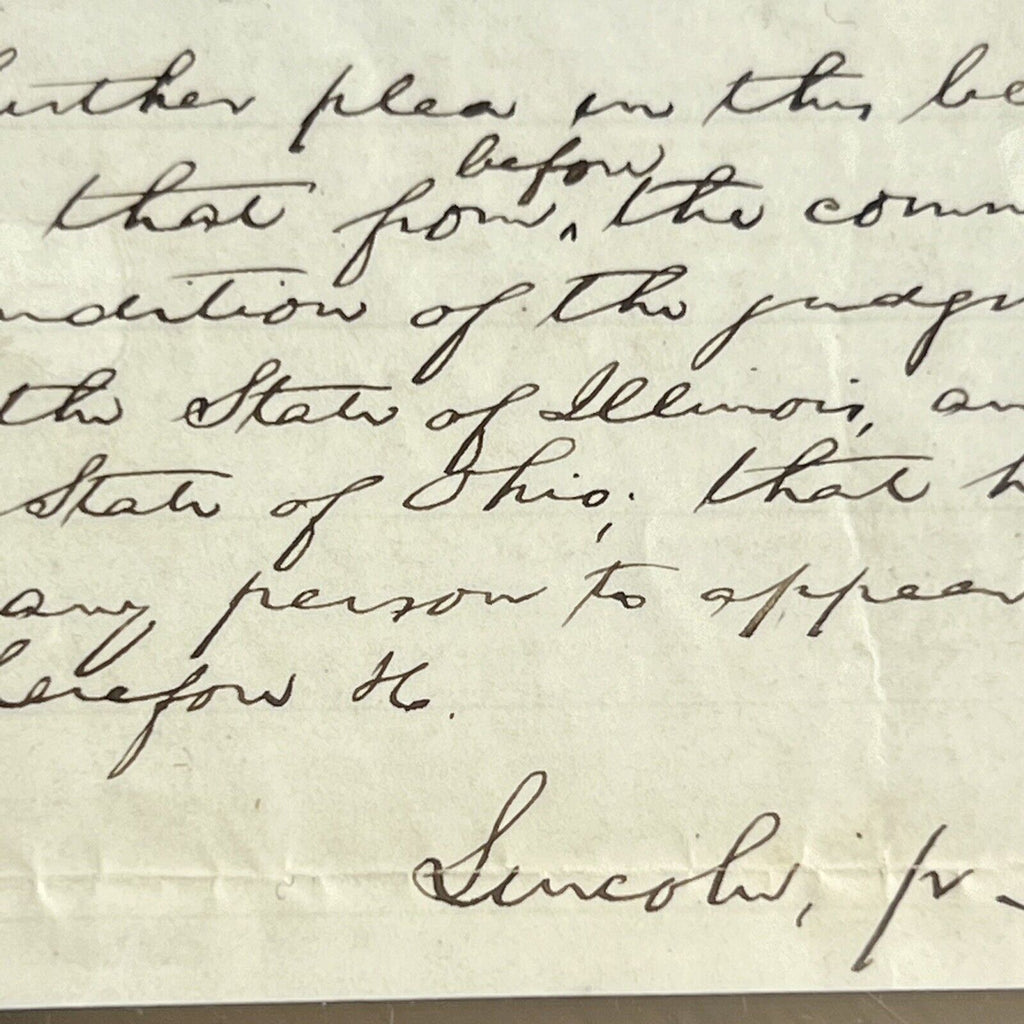 further plea in this be
before
that from ‸ the comm
ndition of the judgm
the State of Illinois, an
State of Ohio; that h
any person to appear
herefore &c.
Lincoln, p.